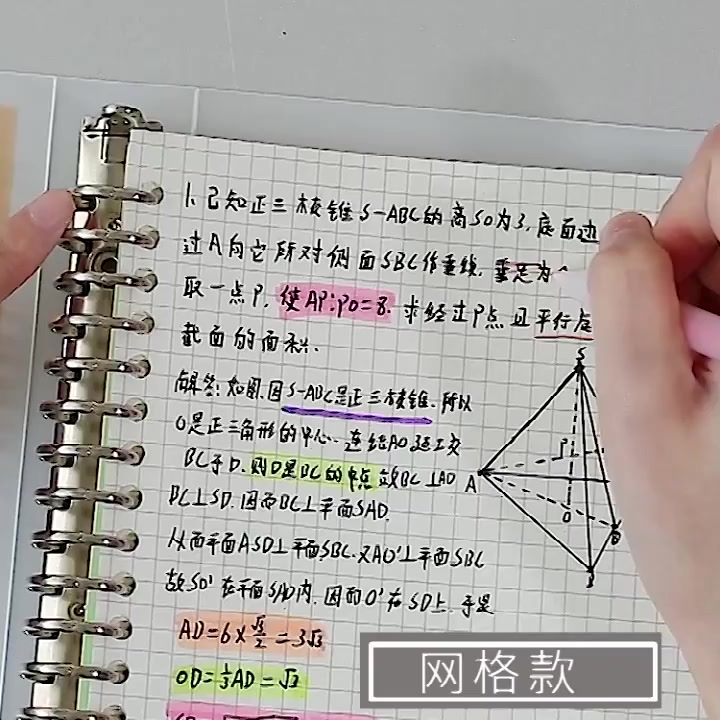 1、已知正三棱锥S-ABC的高SO为3,底面边
过A向它所对侧面SBC作垂线,垂足为
取一点P,使AP:PO=8.求经过P点且平行底
截面的面积.
解答:如图,因S-ABC是正三棱锥.所以
O是正三角形的中心、连结AO延长交
BC于D.则D是BC的中点 故BC⊥AD
BC⊥SD.因而BC⊥平面SAD.
从而平面ASD⊥平面SBC.又AO'⊥平面SBC
故SO'在平面SAD内.因而O'在SD上.于是
AD=6×√3/2=3√3
OD=1/3AD=√3
S
A
O
网格款